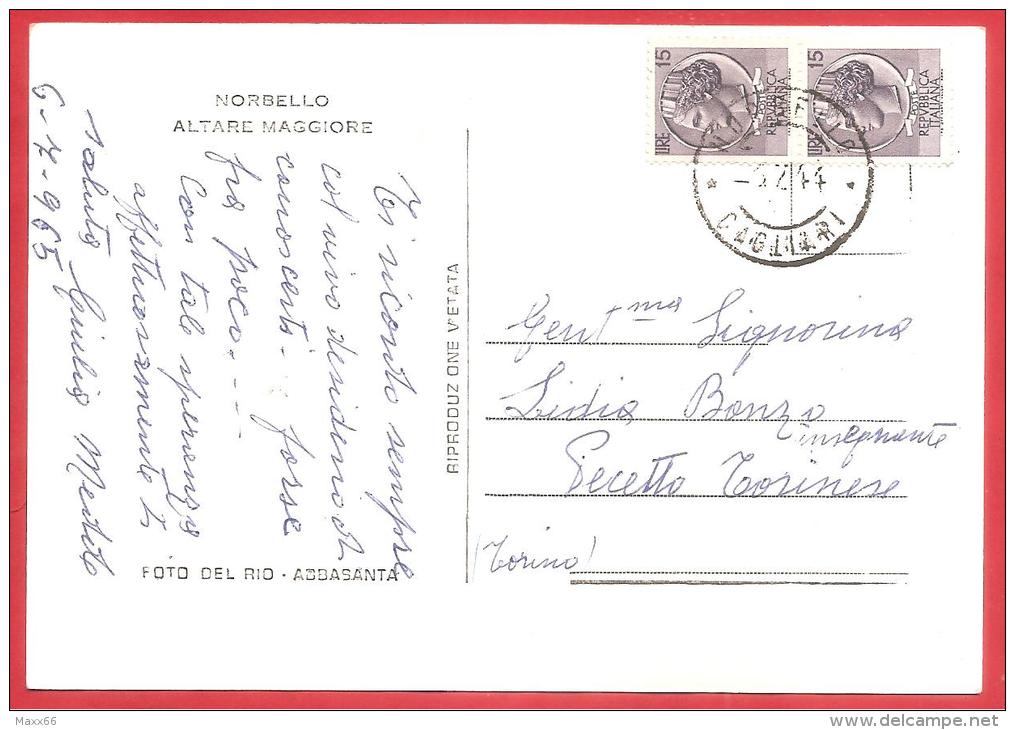 NORBELLO
ALTARE MAGGIORE
6-2-965
Ti ricordo sempre
col vivo desiderio di
conoscerti. forse
fra poco. - - -
Con tale speranza
affettuosamente ti
saluto Giulia
FOTO DEL RIO - ABBASANTA
RIPRODUZIONE VIETATA
15 LIRE
POSTE
REPVBBLICA
ITALIANA
15 LIRE
POSTE
REPVBBLICA
ITALIANA
CAGLIARI
Gent.ma Signorina
Lidia Bonzo
insegnante
Pecetto Torinese
(Torino)
Maxx66
www.delcampe.net